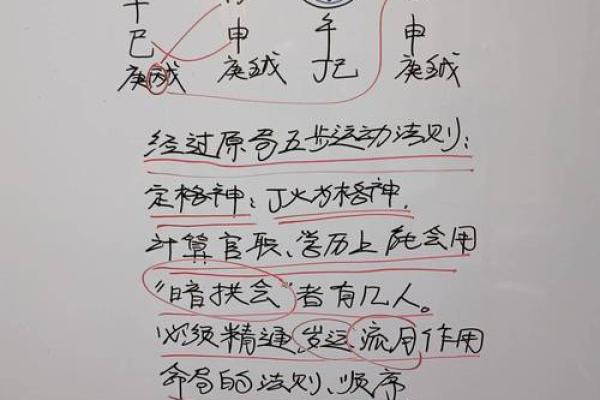 巳 申 午 申
庚丙戊 庚壬戊 丁己 庚壬戊
经过原局五步运动法则:
定格神:丁火为格神.
计算官职、学历上能会用
"暗拱会"者有几人。
必须精通、岁运、流月作用
命局的法则、顺序